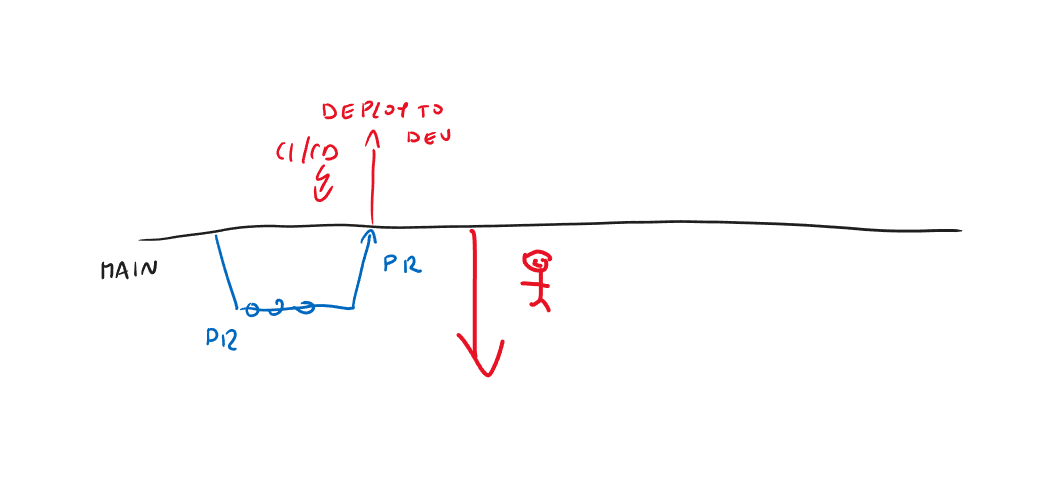 DEPLOY TO
DEV
CI/CD
MAIN
PR
PR